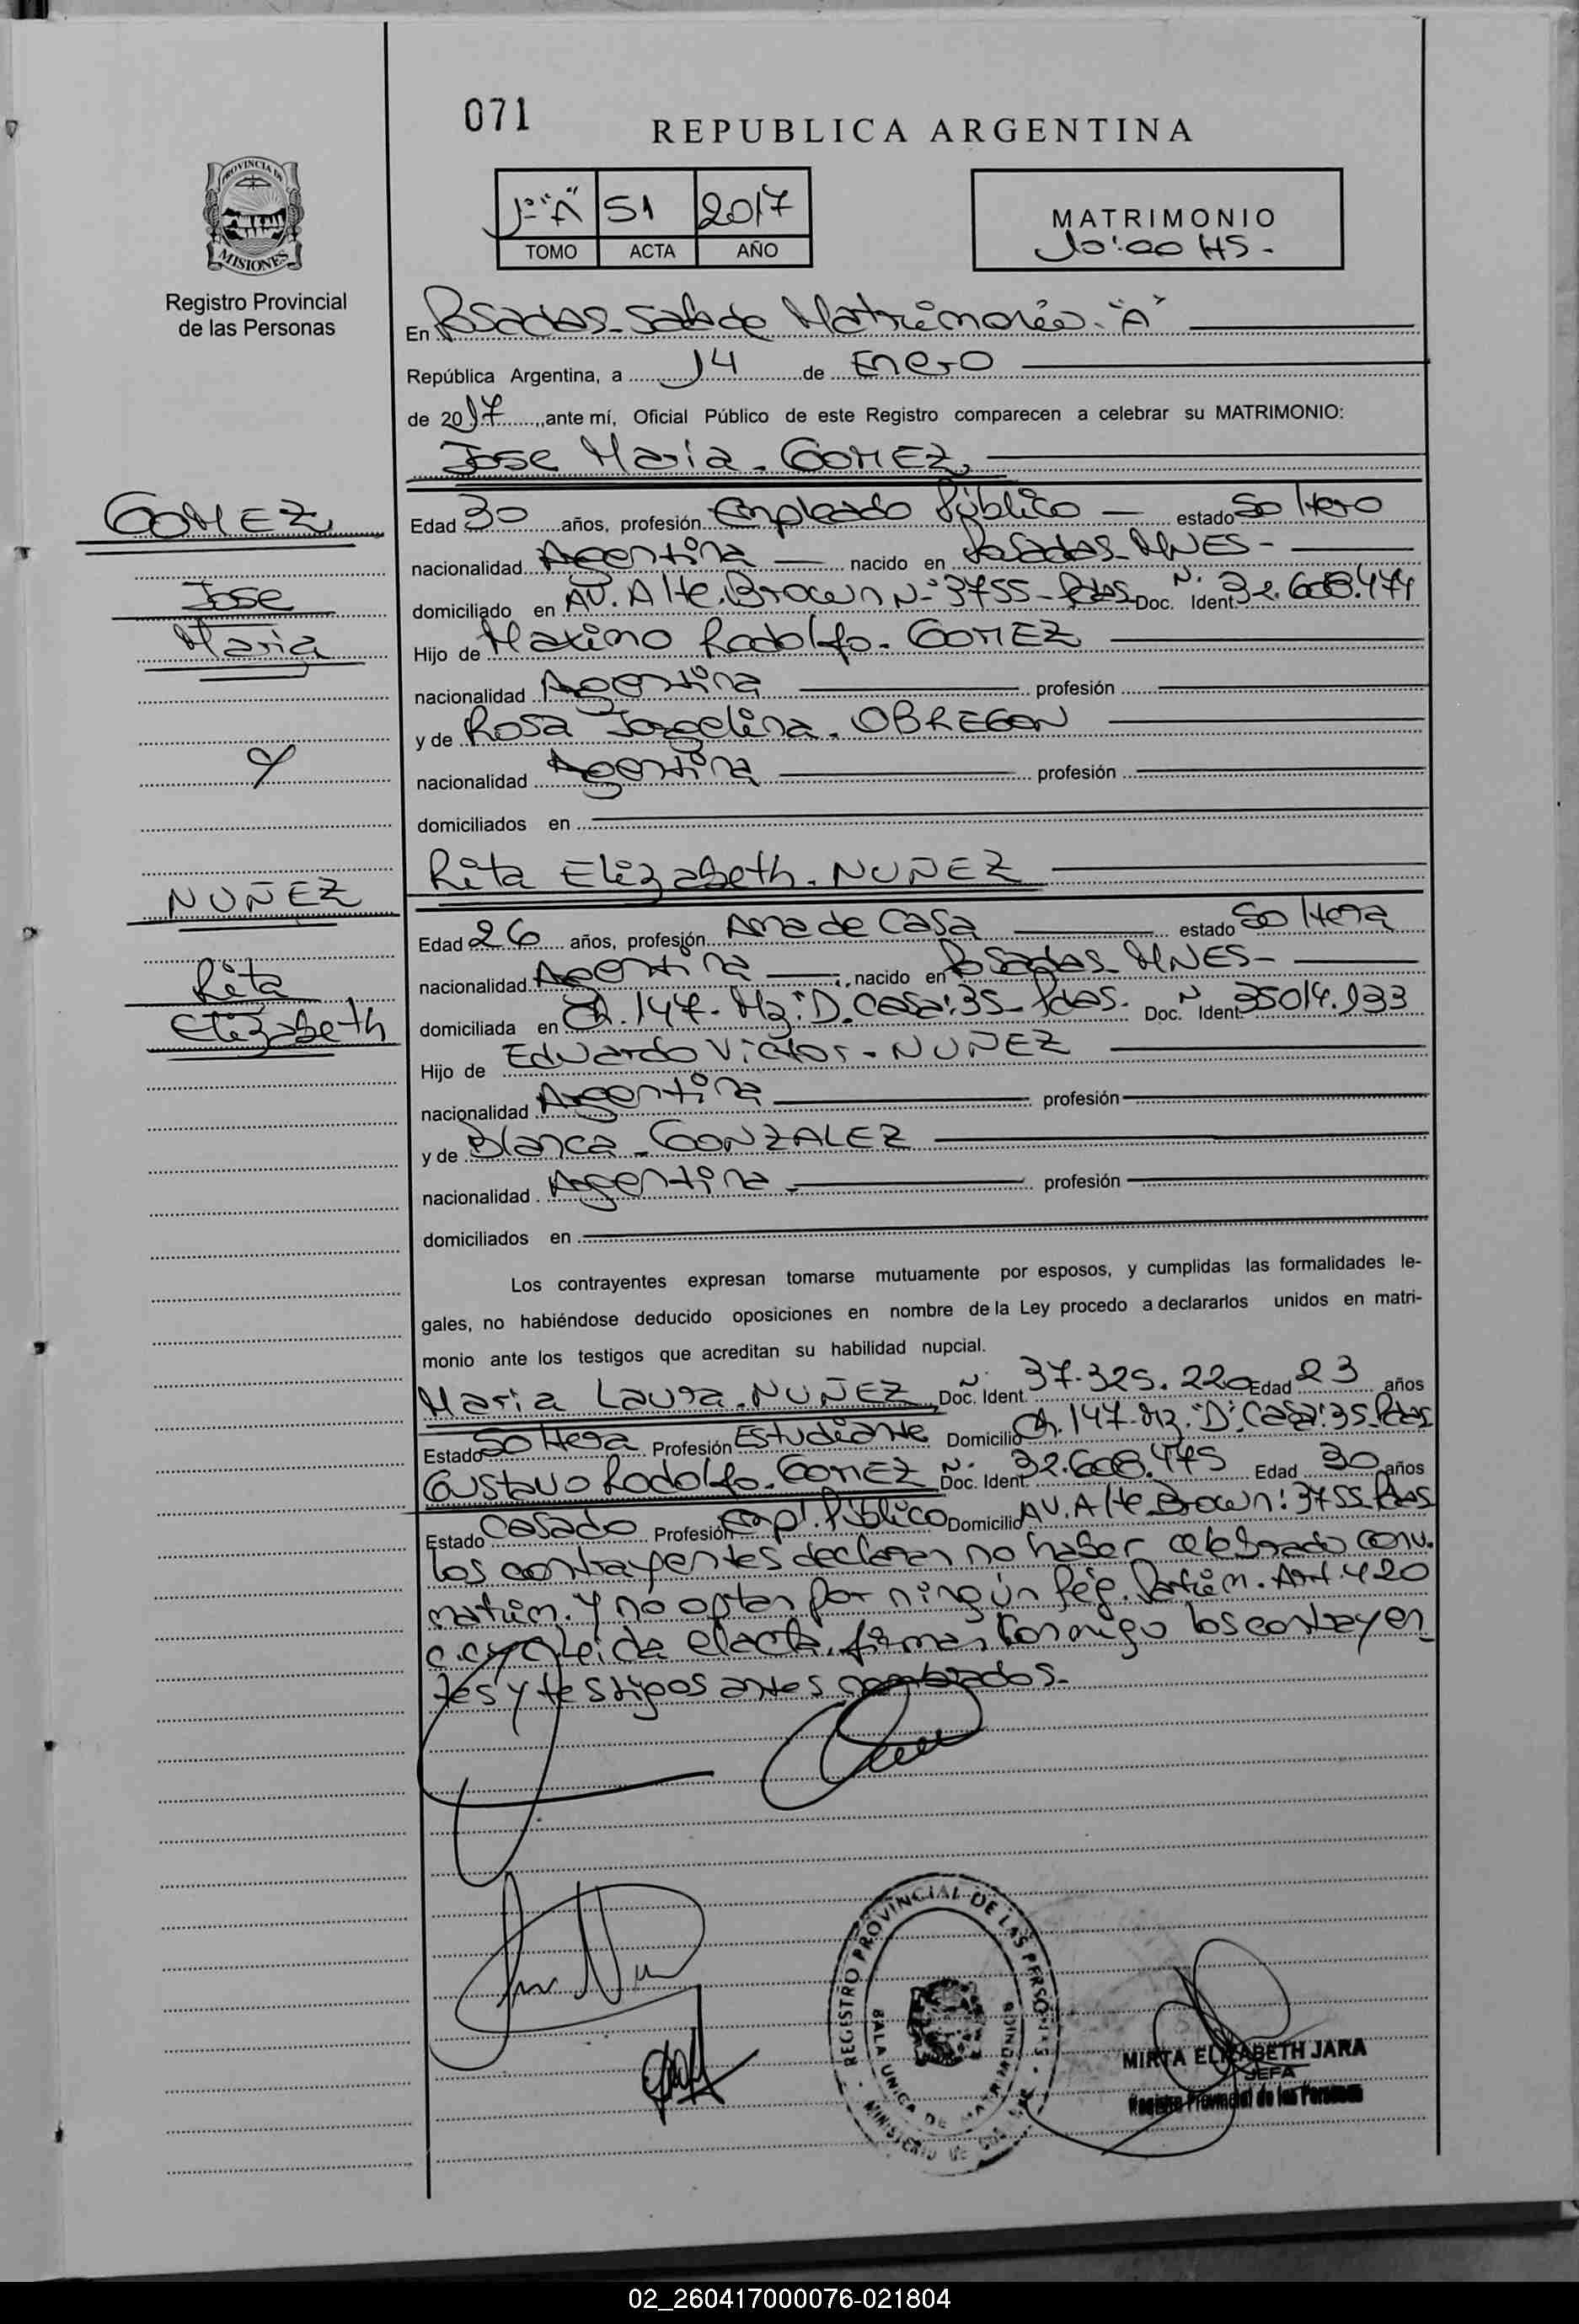 071
REPUBLICA ARGENTINA
1º "A" 51 2017
TOMO ACTA AÑO
MATRIMONIO
10:00 HS.-
PROVINCIA DE
MISIONES
Registro Provincial
de las Personas
En Posadas-Sala de Matrimonio-"A"
República Argentina, a 14 de Enero
de 2017, ante mí, Oficial Público de este Registro comparecen a celebrar su MATRIMONIO:
Jose Maria. GOMEZ,
GOMEZ,
Edad 30 años, profesión Empleado Público - estado Soltero
nacionalidad Argentina nacido en Posadas-MNES-
Jose
domiciliado en AV. Alte. Brown Nº 3755-Pdas. Doc. Nº Ident 32.608.474
Maria
Hijo de Maximo Rodolfo. GOMEZ
nacionalidad Argentina profesión
y de Rosa Jorgelina. OBREGON
y
nacionalidad Argentina profesión
domiciliados en
Rita Elizabeth. NUÑEZ
NUÑEZ
Edad 26 años, profesión Ama de Casa estado Soltera
Rita
nacionalidad Argentina, nacido en Posadas-MNES-
Elizabeth
domiciliada en Ch. 147-Mz:"D. Casa:35-Pdas. Doc. Nº Ident 35014.933
Hijo de Eduardo Victor-NUÑEZ
nacionalidad Argentina profesión
y de Blanca-GONZALEZ
nacionalidad Argentina.- profesión
domiciliados en
Los contrayentes expresan tomarse mutuamente por esposos, y cumplidas las formalidades le-
gales, no habiéndose deducido oposiciones en nombre de la Ley procedo a declararlos unidos en matri-
monio ante los testigos que acreditan su habilidad nupcial.
Maria Laura. NUÑEZ, Doc. Nº Ident. 37.325.220 Edad 23 años
Estado Soltera Profesión Estudiante Domicilio Ch. 147-Mz."D". Casa:35-Pdas
Gustavo Rodolfo. GOMEZ Doc. Nº Ident. 32.608.475 Edad 30 años
Estado Casado Profesión Emp. Público Domicilio AV. Alte Brown: 3755-Pdas
Los contrayentes declaran no haber celebrado conv.
matrim. y no optan por ningún Rég. Patrim. Art. 420
C.C y C. Leida el acta, firman conmigo los contrayen-
tes y testigos antes nombrados.-
REGISTRO PROVINCIAL DE LAS PERSONAS
SALA UNICA DE MATRIMONIOS
MINISTERIO DE
MIRTA ELIZABETH JARA
JEFA
Registro Provincial de las Personas
02_260417000076-021804